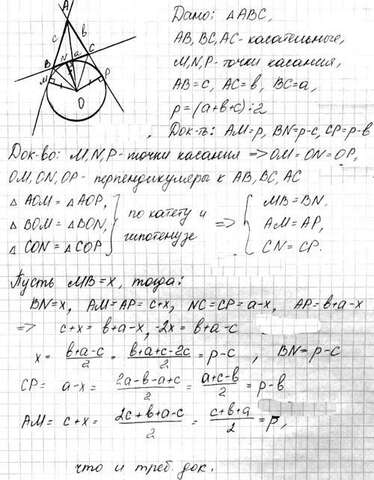 Дано: △ABC,
AB, BC, AC - касательные,
M, N, P - точки касания,
AB=c, AC=b, BC=a,
p=(a+b+c):2
Док-ть: AM=p, BN=p-c, CP=p-b
A
c
b
B
N
a
C
M
P
O
Док-во: M,N,P- точки касания => OM=ON=OP,
OM, ON, OP - перпендикуляры к AB, BC, AC
△ AOM = △ AOP,
△ BOM = △ BON,
△ CON = △ COP
по катету и
гипотенузе
=>
MB=BN,
AM=AP,
CN=CP.
Пусть MB=x, тогда:
BN=x, AM=AP=c+x, NC=CP=a-x, AP=b+a-x
=> c+x=b+a-x, 2x=b+a-c
x = (b+a-c)/2 = (b+a+c-2c)/2 = p-c , BN=p-c
CP= a-x= (2a-b-a+c)/2 = (a+c-b)/2 = p-b
AM= c+x= (2c+b+a-c)/2 = (c+b+a)/2 = p,
что и треб. док.